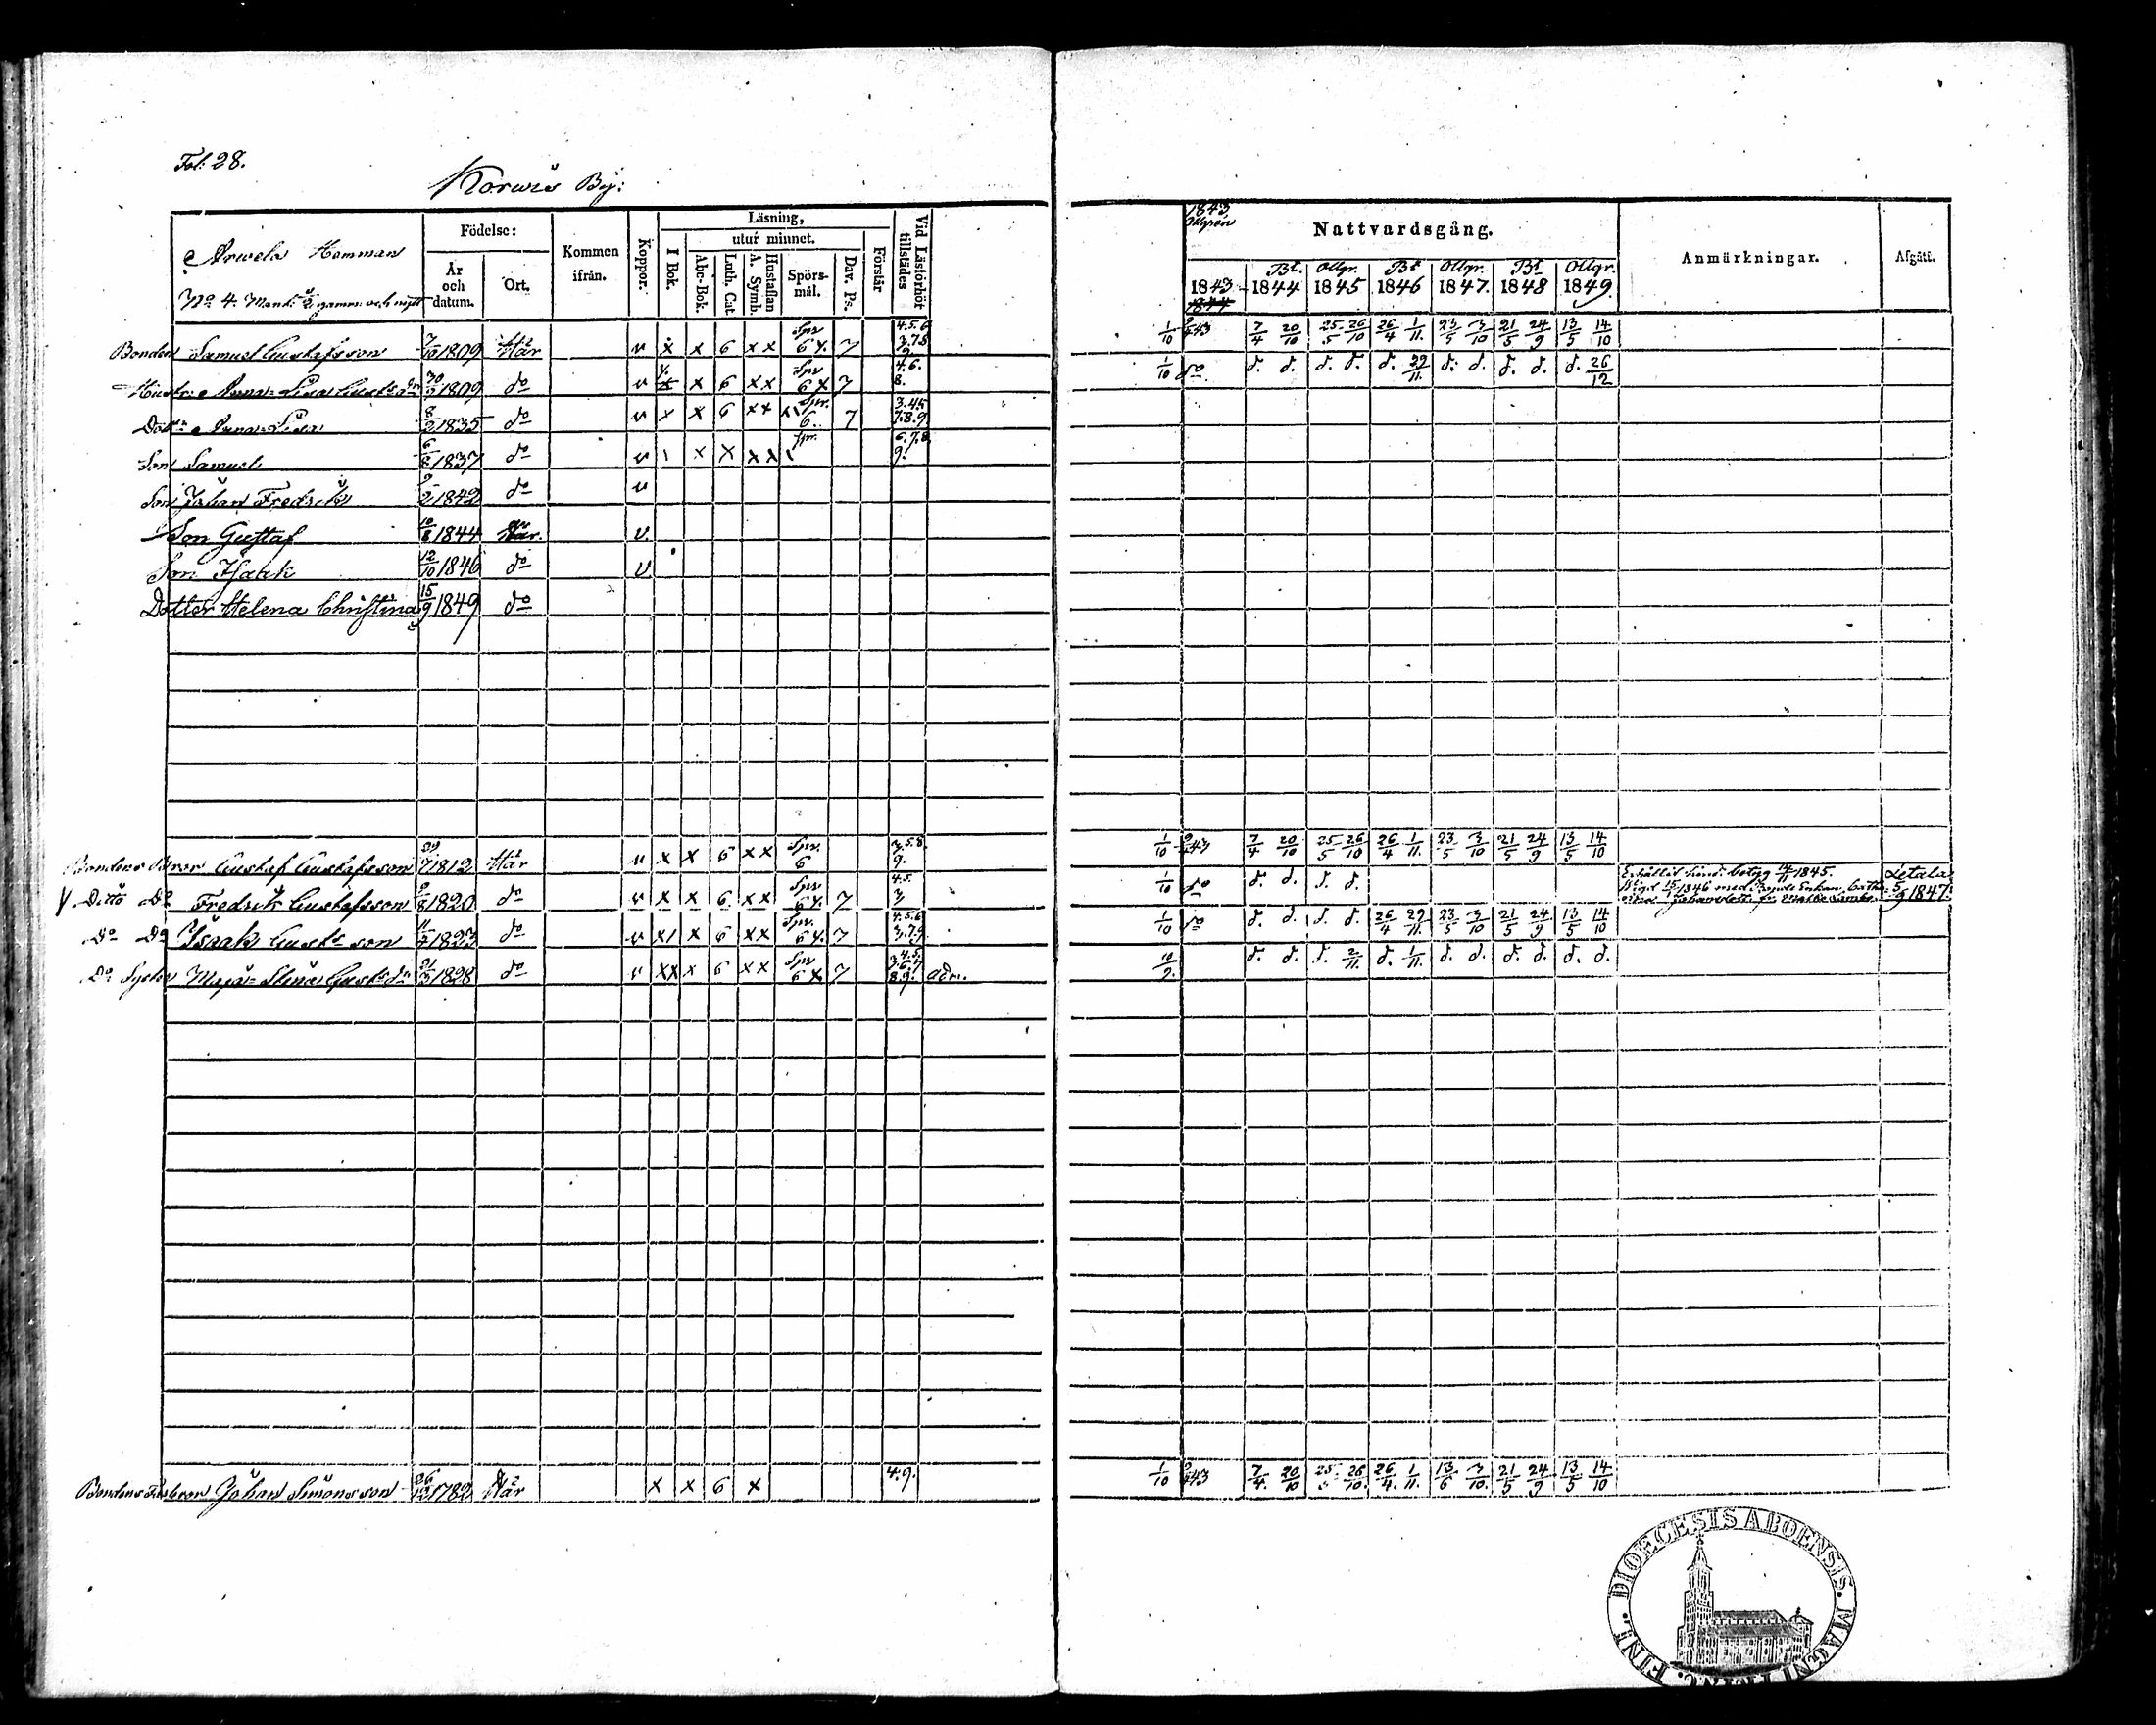 Fol: 28.
Korwis By:
Arwela Hemman
No 4. Mant.
Födelse:
År och datum.
Ort.
Kommen ifrån.
Koppor.
Läsning,
I Bok.
utur minnet.
Abc-Bok.
Luth. Cat
Hustaflan A. Symb.
Spörsmål.
Dav. Ps.
Förstår
Vid Läsförhör tillstädes
1843
Nattvardsgång.
1843 1844 1845 1846 1847. 1848 1849
Anmärkningar.
Afgått.
Bonden Samuel Gustafsson 7/10 1809 Här v x x 6 x x Spr 6 x. 7 1/10 7/4 20/10 25/5 26/10 26/4 1/11. 23/5 3/10 21/5 24/9 13/5 14/10
Hustr. Anna-Lisa Gustsdr 1809 do v x x 6 x x Spr 6 x 7 4.6. 8. 1/10 do d. d. d. d. d. 29/11. d. d. d. d. d. 26/12
Dottr Anna-Lisa 1835 do v x x 6 x x Spr. 6. 7 3.4.5 7.8.9
Son Samuel 6/8 1837 do v x x x x Spr. 6.7.8 9.
Son Johan Fredrik 9/2 1842 do v
Son Gustaf 10/8 1844 Här. v.
Son Isaak 12/10 1846 do v
Dotter Helena Christina 15/9 1849 do
Bondens Bror Gustaf Gustafsson 29/7 1812 Här v x x 6 x x Spr. 6 3.5.8 9. 1/10 7/4 20/10 25/5 26/10 26/4 1/11. 23/5 3/10 21/5 24/9 13/5 14/10
V Ditto Do Fredrik Gustafsson 1820 do v x x 6 x x Spr 6 x. 7 4.5. 3 1/10 do d. d. d. d. Erhållit hind. betyg 14/11 1845. Letala
1846 med 5/9 1847.
Do Do Isaak Gusts son 1823 do v x x 6 x x Spr. 6 x. 7 4.5.6 3.7.9 1/10 do d. d. d. d. 26/4 29/11. 23/5 3/10 21/5 24/9 13/5 14/10
Do Syster Maja-Stina Gustsdr 21/3 1828 do v xx x 6 x x Spr 6 x 7 8.9. adm. 10/9. d. d. d. 2/11. d. 1/11. d. d. d. d. d. d.
Bondens Johan Simonsson 26/12 1782 Här x x 6 x 4.9. 1/10 7/4. 20/10 25/5 26/10. 26/4. 1/11. 13/6 3/10. 21/5 24/9 13/5 14/10
DIOECESIS ABOENSIS. MAGNI FINL.